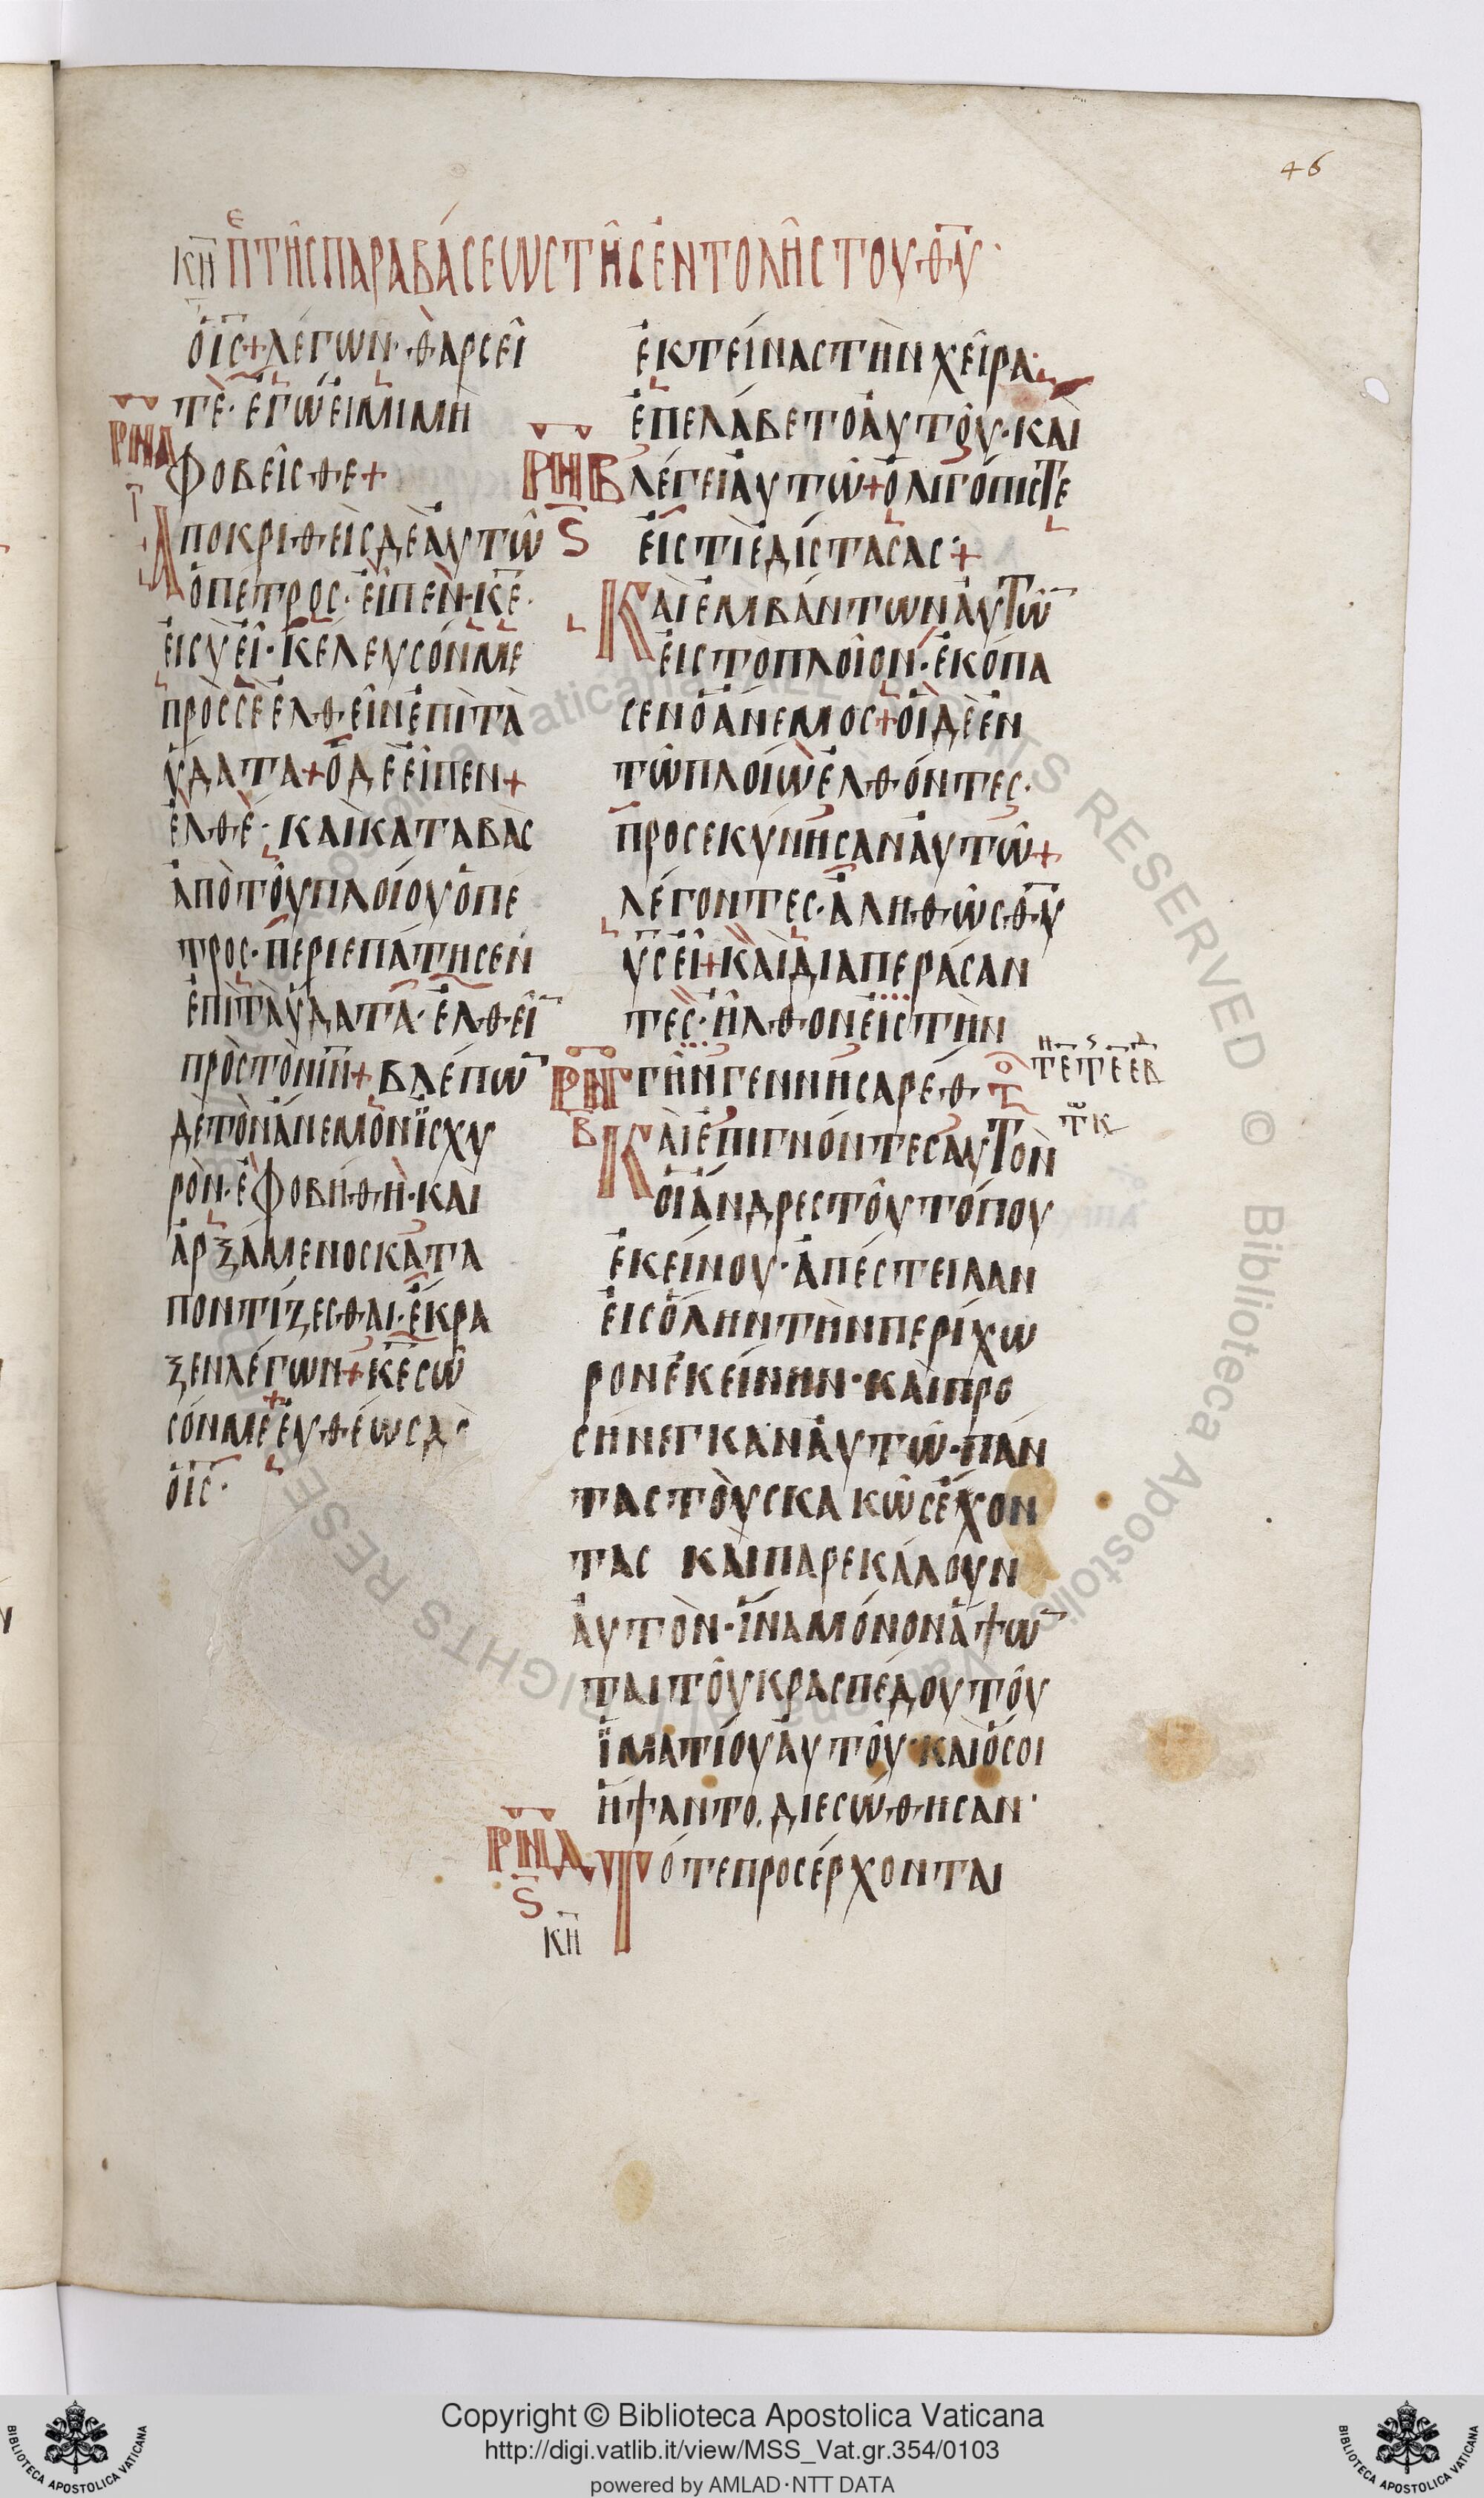 46
κη π̅ε τῆς παραβάσεως τῆς ἐντολῆς του θ̅υ
ὁ ι̅ς + λέγων · θαρσεῖ
τὲ · ἐγὼ εἰμι μὴ
φοβεῖσθε +
ρνα
τ
Αποκριθεὶς δὲ ἀυτῶ
ὁ πέτρος · εἶπεν · κ̅ε ·
εἰ σὺ εἶ · κέλευσόν με
πρὸς σὲ ἐλθεῖν ἐπὶ τὰ
ὕδατα + ὁ δὲ εἶπεν +
ἐλθέ · καὶ καταβὰς
ἀπὸ τοῦ πλοίου ὁ πέ
τρος · περιεπάτησεν
ἐπὶ τὰ ὕδατα · ἐλθεῖ̅
πρὸς τὸν ι̅ν + βλέπω̅
δὲ τὸν ἄνεμον ἰσχυ
ρὸν · ἐφοβήθη · καὶ
ἀρξάμενος κατα
ποντίζεσθαι · ἔκρα
ξεν λέγων + κ̅ε σῶ
σόν με + ἐυθέως δὲ
ὁ ι̅ς ·
ἐκτείνας τὴν χεῖρα ·
ἐπελάβετο ἀυτοῦ · καὶ
ρνβ
ς
λέγει ἀυτῶ + ὀλιγόπιστε
εἰς τί ἐδίστασας · +
Καὶ ἐμβάντων ἀυτῶ̅
εἰς τὸ πλοῖον · ἐκόπα
σεν ὁ ἄνεμος + ὁι δὲ ἐν
τῶ πλοίω ἐλθόντες ·
προσεκύνησαν ἀυτῶ +
λέγοντες · ἀληθῶς θ̅υ
υ̅ς εἶ + καὶ διαπεράσαν
τες · ἦλθον εἰς τὴν
ρνγ
β
γῆν γεννησαρέθ
Καὶ ἐπιγνόντες αυτὸν
ὁι ἄνδρες τοῦ τόπου
ἐκείνου · ἀπέστειλαν
εἰς ὅλην τὴν περίχω
ρον ἐκείνην · καὶ προ
σήνεγκαν ἀυτῶ · πάν
τας τοὺς κακῶς ἔχον
τας καὶ παρεκάλουν
ἀυτὸν · ἵνα μόνον ἅψω̅
ται τοῦ κρασπέδου τοῦ
ἱματίου ἀυτοῦ · καὶ ὅσοι
ἥψαντο. διεσώθησαν ·
ρνδ
ς
Τότε προσέρχονται
κη
Copyright © Biblioteca Apostolica Vaticana
http://digi.vatlib.it/view/MSS_Vat.gr.354/0103
powered by AMLAD·NTT DATA
BIBLIOTECA APOSTOLICA VATICANA
BIBLIOTECA APOSTOLICA VATICANA